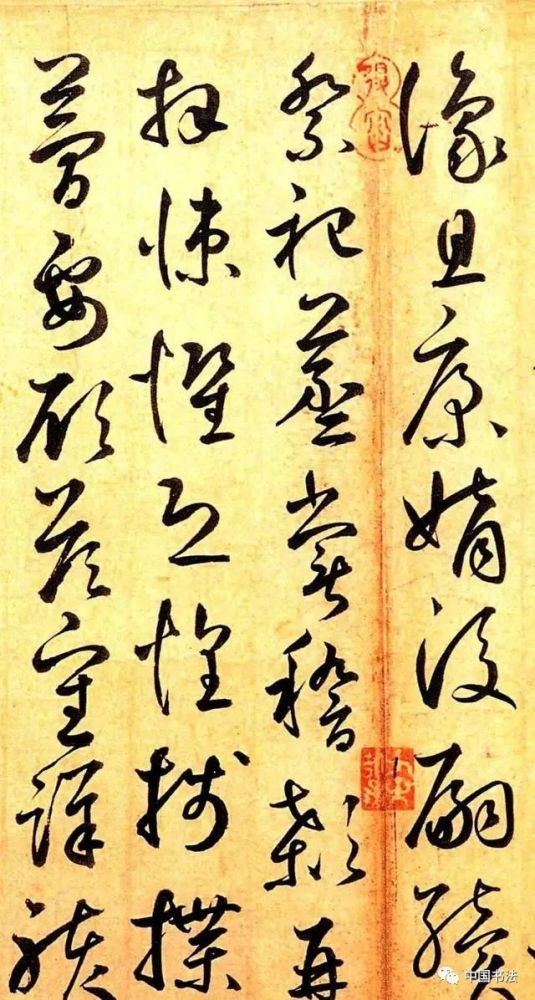 豫且康嫡後嗣續
祭祀蒸嘗稽顙再
拜悚懼恐惶牋牒
簡要顧答審詳骸
中国书法